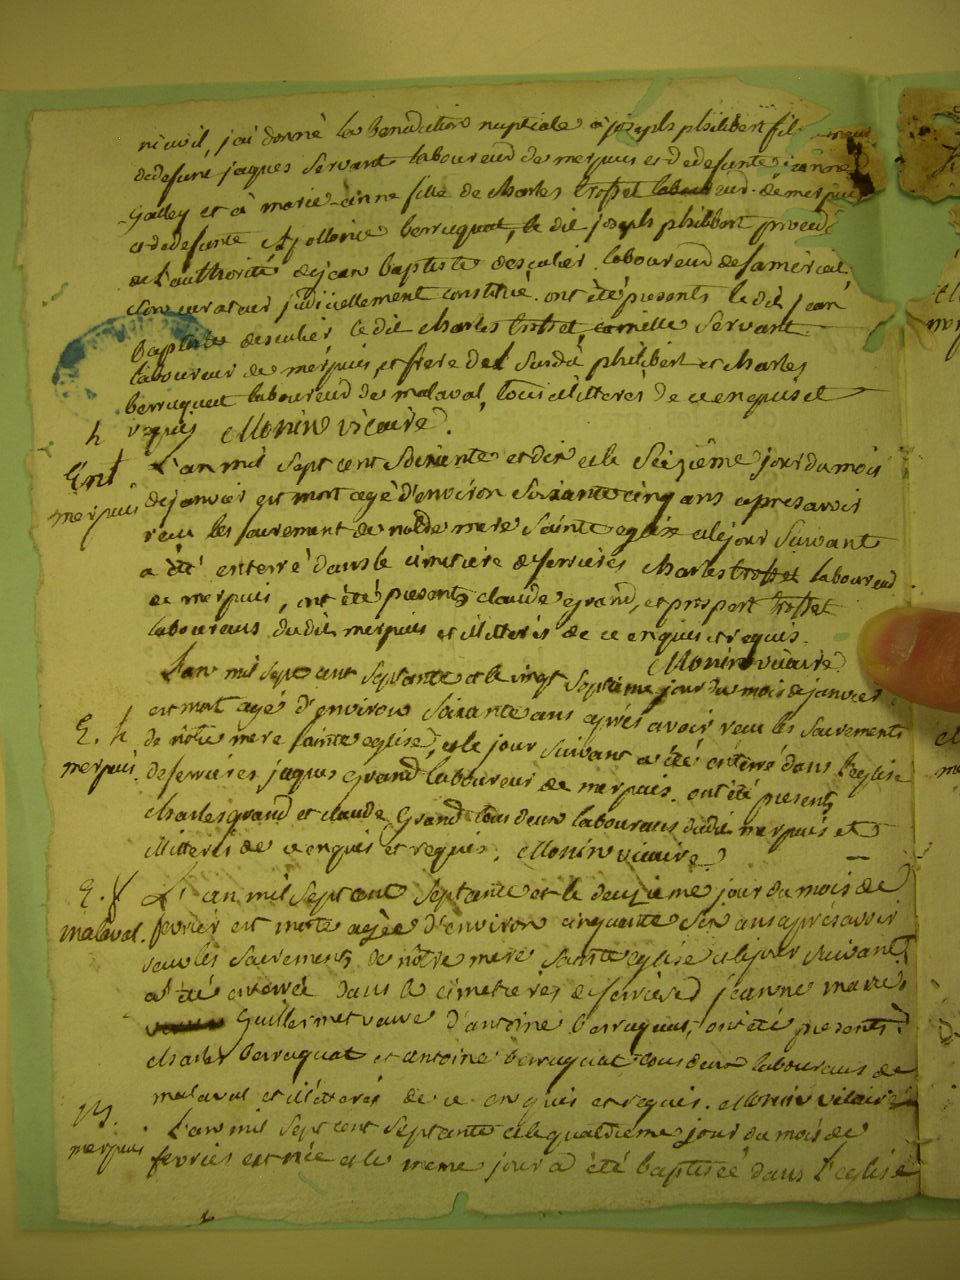 ni civil, j'ai donné la benediction nuptiale à joseph philibert fil
de defunt jaques Servant laboureur de merpuis et de defunte jeanne
Galley et à marie anne fille de Charles trosset laboureur de merpuis
et de defunte Apollonie berruquat, le dit joseph philibert
de l'authorité de jean baptiste descalier laboureur
Son curateur judiciellement constitué. ont été présents le dit jean
baptiste descalier le dit Charles trosset Servant
laboureur de merpuis, et frere del Susdit philibert et Charles
berruquet laboureur de malaval, tous illitterés de ce enquis et
requis Monin vicaire.
h
Ent L'an mil sept cent septante et dix et le Seizième jour du mois
merpuis de janvier est mort agé d'environ Soixante cinq ans apres avoir
recu les sacrement de notre mere Sainte eglise et le jour Suivant
a été enterré dans le cimetiere de ferrieres Charles trosset laboureur
de merpuis, ont été presents claude grand, et prospert trosset
laboureurs dudit merpuis et illiterés de ce enquis et requis.
Monin vicaire
L'an mil sept cent septante et le vingt septieme jour du mois de janvier
est mort agé d'environ soixante ans aprés avoir recu les sacrements
E. h de notre mere sainte eglise, et le jour suivant a été enterré dans l'eglise
merpuis. de ferrieres jaques grand laboureur de merpuis. ont été present
Charles grand et claude Grand tous deux laboureurs dudit merpuis et
illitterés de ce enquis et requis. Monin vicaire
E. f L'an mil sept cent septante et le deuzieme jour du mois de
malaval. fevrier est morte agée d'environ cinquante six ans aprés avoir
receu les sacrements de nôtre mere Sainte eglise et le jour suivant
a été enterrée dans le cimetieres de ferrieres jeanne marie
Guillermet veuve d'antoine berruquat, ont été presents
Charles berruquat et antoine berruquat tous deux laboureurs de
malaval et illiterés de ce enquis et requis. Monin vicaire
L'an mil sept cent septante et le quatrieme jour du mois de
merpuis fevrier est née et le meme jour a été baptisée dans l'eglise